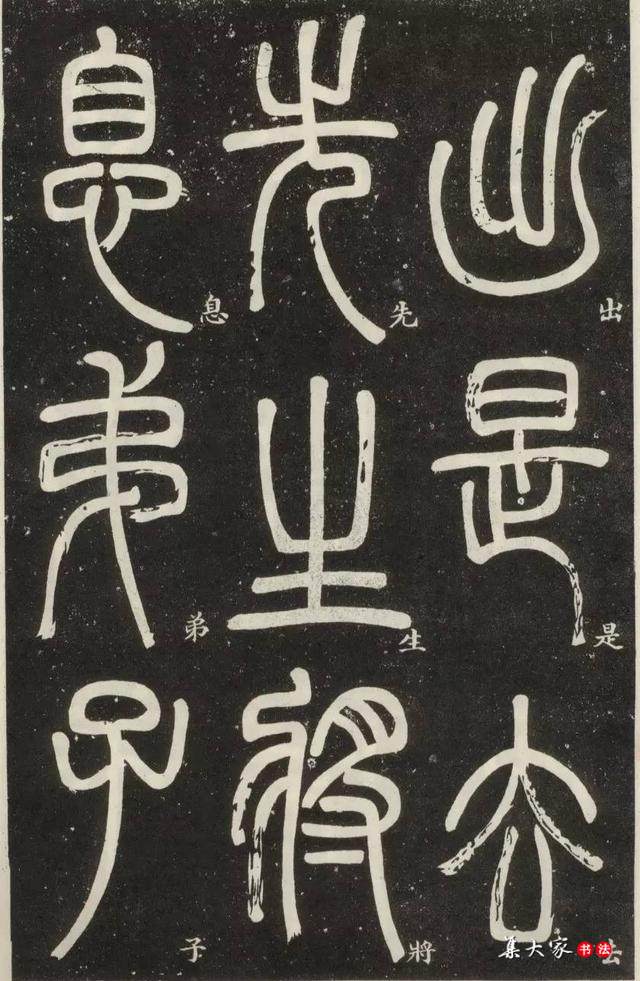 出是去
先生將
息弟子
集大家书法